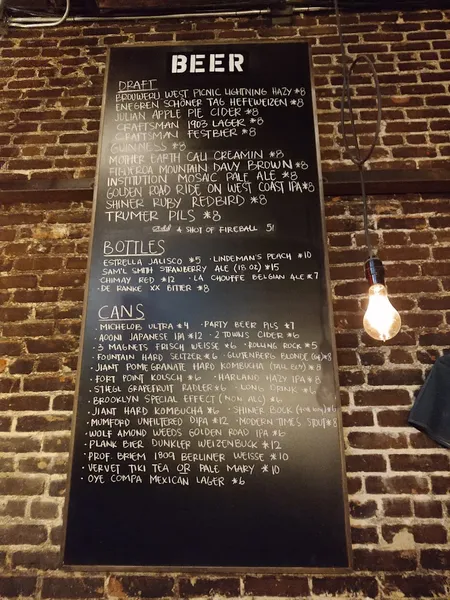 BEER
DRAFT
BROUWERIJ WEST PICNIC LIGHTNING HAZY $8
ENEGREN SCHÖNER TAG HEFEWEIZEN $8
JULIAN APPLE PIE CIDER $8
CRAFTSMAN 1903 LAGER $8
CRAFTSMAN FESTBIER $8
GUINNESS $8
MOTHER EARTH CALI CREAMIN $8
FIGUEROA MOUNTAIN DAVY BROWN $8
INSTITUTION MOSAIC PALE ALE $8
GOLDEN ROAD RIDE ON WEST COAST IPA $8
SHINER RUBY REDBIRD $8
TRUMER PILS $8
A SHOT OF FIREBALL 5!
BOTTLES
ESTRELLA JALISCO $5 · LINDEMAN'S PEACH $10
SAM'L SMITH STRAWBERRY ALE (18 OZ) $15
CHIMAY RED $12 · LA CHOUFFE BELGIAN ALE $7
· DE RANKE XX BITTER $8
CANS
· MICHELOB ULTRA $4 · PARTY BEER PILS $7
· ADONI JAPANESE IPA $12 · 2 TOWNS CIDER $6
· 3 MAGNETS FRISCH WEISSE $6 · ROLLING ROCK $5
· FOUNTAIN HARD SELTZER $6 · GLUTENBERG BLONDE (GF) $8
· JIANT POMEGRANATE HARD KOMBUCHA $8
· FORT POINT KOLSCH $6 · HARLAND HAZY IPA $8
· STIEGL GRAPEFRUIT RADLER $6 · LONG DRINK $6
· BROOKLYN SPECIAL EFFECT (NON ALC) $6
· JIANT HARD KOMBUCHA $6 · SHINER BOCK $6
· MUMFORD UNFILTERED DIPA $12 · MODERN TIMES STOUT $8
· WOLF AMOND WEEDS GOLDEN ROAD IPA $6
· PLANK BIER DUNKLER WEIZENBUCK $12
· PROF. BRIEM 1809 BERLINER WEISSE $10
· VERVET TIKI TEA OR PALE MARY $10
· OYE COMPA MEXICAN LAGER $6